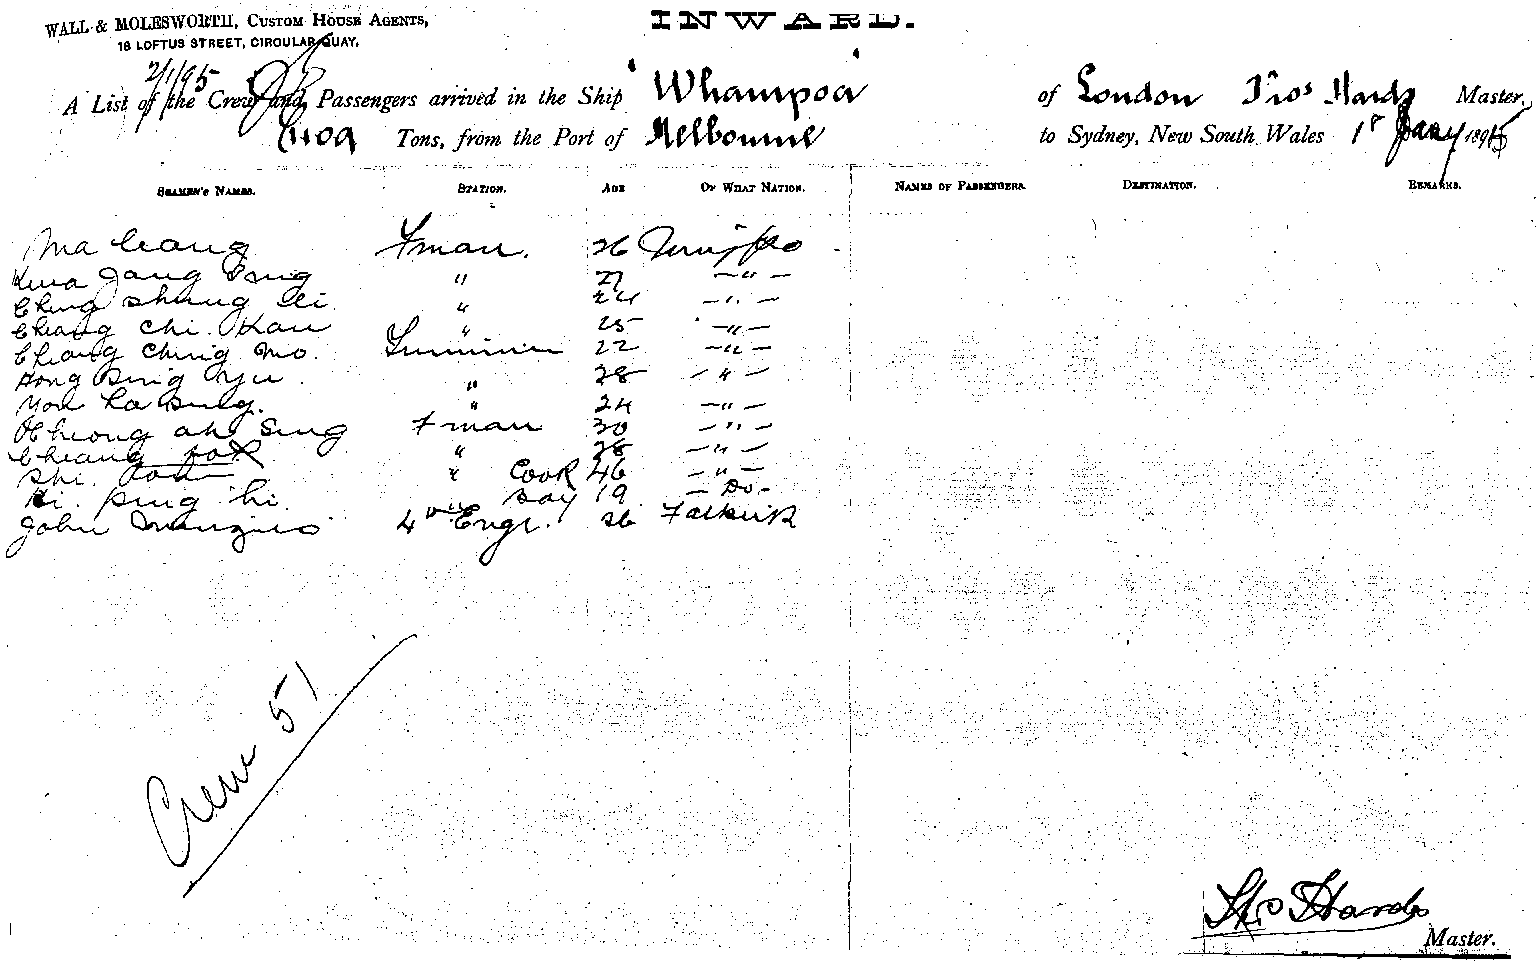 WALL & MOLESWORTH, CUSTOM HOUSE AGENTS,
18 LOFTUS STREET, CIRCULAR QUAY.
INWARD.
2/1/95
A List of the Crew and Passengers arrived in the Ship "Whampoa" of London Thos Hards Master,
1109 Tons, from the Port of Melbourne to Sydney, New South Wales 1st Jany 1895
SEAMEN'S NAMES. STATION. AGE OF WHAT NATION. NAMES OF PASSENGERS. DESTINATION. REMARKS.
Ma F'man. 26
" 27 — " —
Ching Shung " 24 — " —
Cheang Chi Kau " 25 — " —
Cheang Ching Mo. 22 — " —
Hong Sing Yu " 28 — " —
" 24 — " —
Cheong ah Sing F'man 30 — " —
Cheang " 28 — " —
Shi " Cook 46 — " —
Ping hi. Boy 19 — Do —
John 4th Engr. 26 Falkirk
Crew 51
Tho Hards
Master.